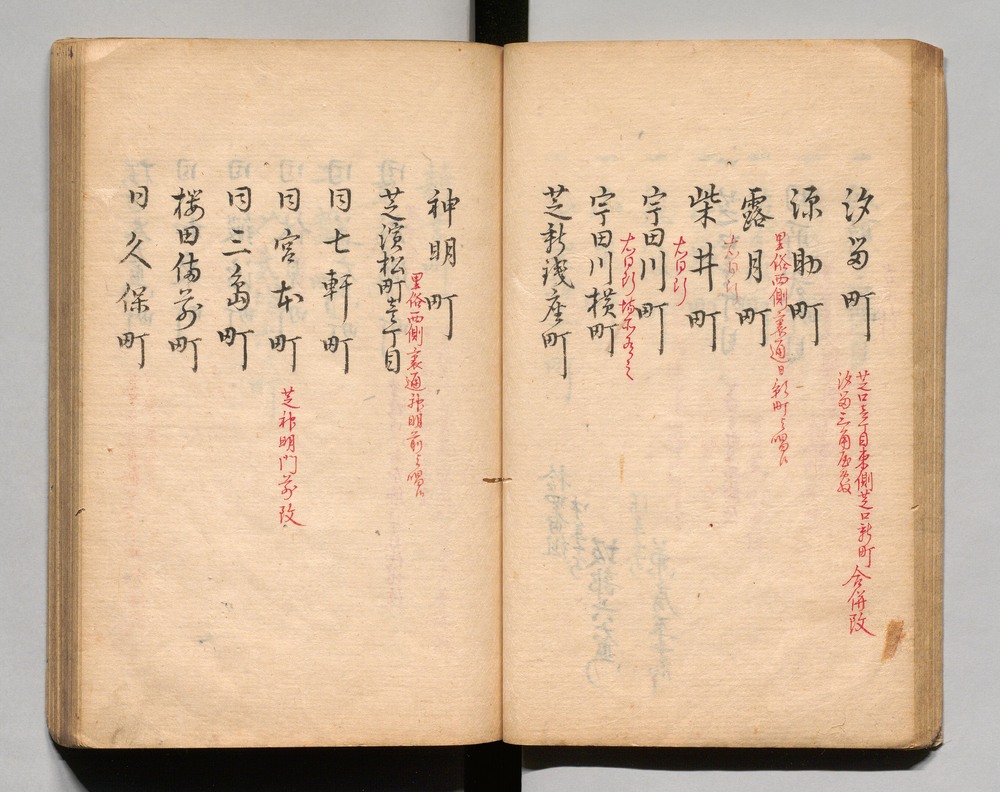 汐留町
芝口壱丁目東側芝口新町合併改
汐留三角屋敷
源助町
里俗西側裏通日影町と唱候
露月町
右同断
柴井町
右同断
宇田川町
右同断
宇田川横町
芝新銭座町
神明町
里俗西側裏通神明前と唱候
芝濱松町壱丁目
同七軒町
同宮本町
芝神明門前改
同三島町
桜田備前町
同久保町